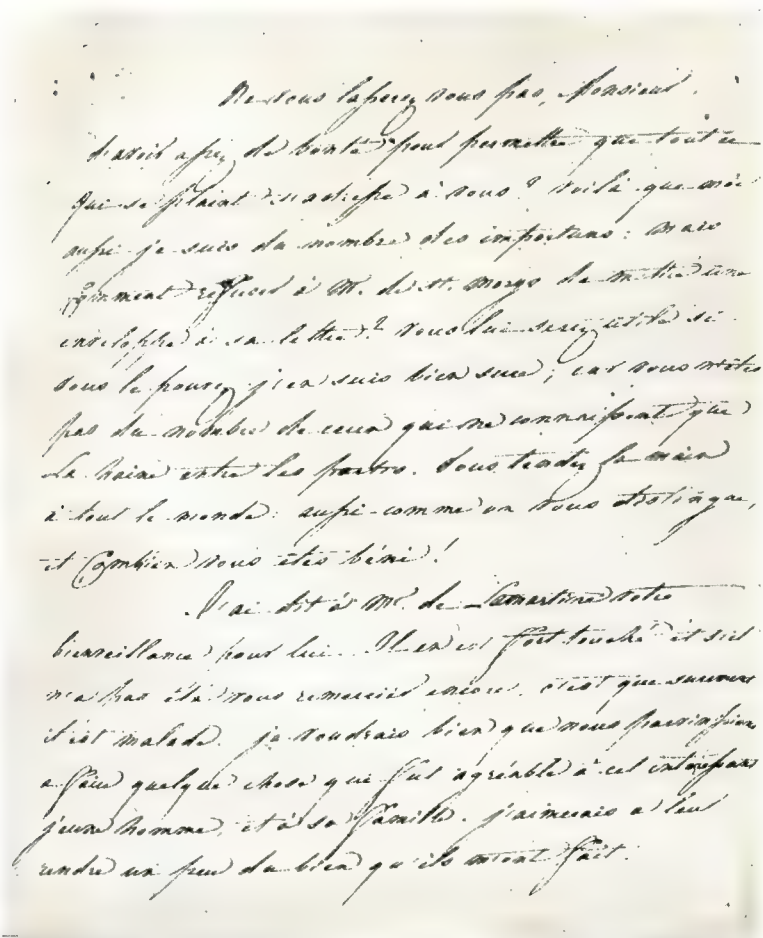 Ne vous lasserez vous pas, Monsieur,
d'avoir assez de bonté pour permettre que tout ce
qui se plaint s'adresse à vous? voilà que moi
aussi je suis du nombre des importuns: mais
comment refuser à Mr. de St. Morys de mettre une
enveloppe à sa lettre? vous lui serez utile si
vous le pouvez j'en suis bien sure; car vous n'êtes
pas du nombre de ceux qui ne connaissent que
la haine entre les partis. vous tendez la main
à tout le monde: aussi comme on vous distingue,
et combien vous êtes béni!
J'ai dit à Mr. de Lamartine votre
bienveillance pour lui. Il en est fort touché et s'il
n'a pas été vous remercier encore. c'est que
il est malade. je voudrais bien que nous parvinssions
a faire quelque chose qui fut agréable à cet intéressant
jeune homme, et à sa famille. j'aimerais a leur
rendre un peu du bien qu'ils m'ont fait.